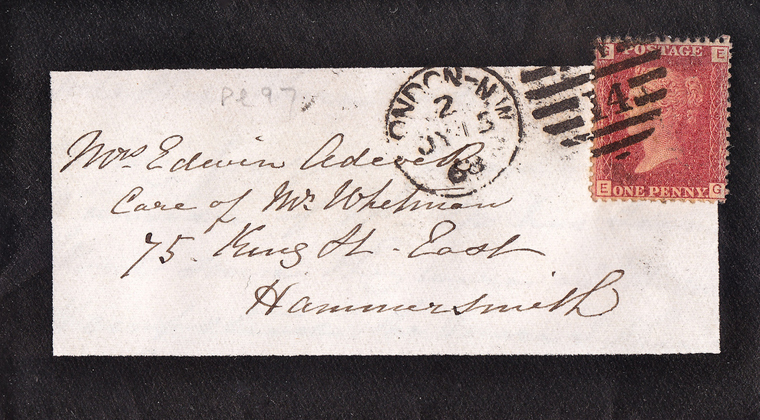 Pl 97
LONDON-N.W
2
JY 15
68
14
G POSTAGE E
E ONE PENNY G
Mrs Edwin Adcock
Care of Mr. Whelman
75. King St. East
Hammersmith